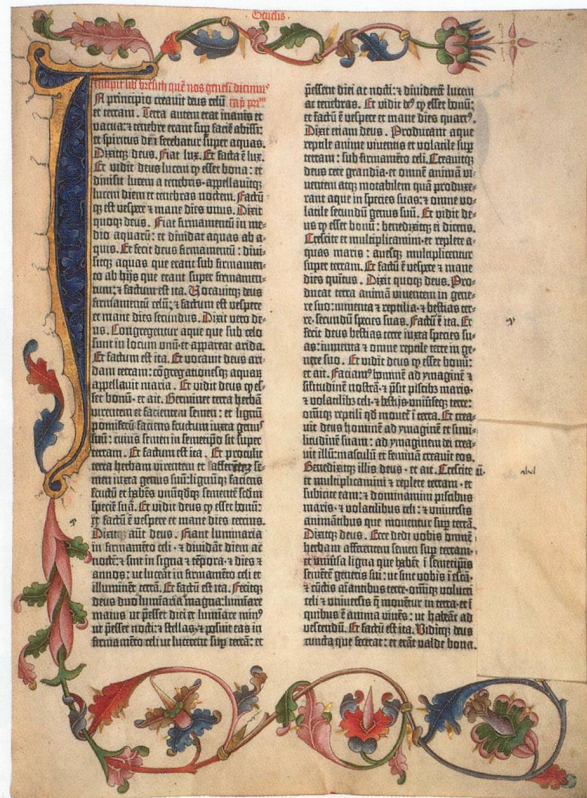 Genesis
Incipit lib bresith quē nos genesī dicimus
In principio creavit deus celū
et terram. Terra autem erat inanis et
vacua: et tenebre erant sup faciē abissi:
et spiritus dn̄i ferebatur super aquas.
Dixitq; deus. Fiat lux. Et facta ē lux.
Et vidit deus lucem ꝙ esset bona: et
divisit lucem a tenebris· appellavitq;
lucem diem et tenebras noctem. Factū
q; est vespere et mane dies unus. Dixit
quoq; deus. Fiat firmamentū in me-
dio aquarū: et dividat aquas ab a-
quis. Et fecit deus firmamentū: divi-
sitq; aquas que erant sub firmamen-
to ab hijs que erant super firmamen-
tum: et factum est ita. Vocavitq; deus
firmamentū celū: et factum est vespere
et mane dies secundus. Dixit vero de-
us. Congregentur aque que sub celo
sunt in locum unū et appareat arida.
Et factum est ita. Et vocavit deus ari-
dam terram: cōgregationesq; aquarū
appellavit maria. Et vidit deus ꝙ es-
set bonū· et ait. Germinet terra herbā
virentem et facientem semen: et lignū
pomiferū faciens fructum iuxta genus
suū: cuius semen in semetipo sit super
terram. Et factum est ita. Et protulit
terra herbam virentem et afferentē se-
men iuxta genus suū: lignūq; faciens
fructū et habēs unūqdq; sementē scdm
speciē suā. Et vidit deus ꝙ esset bonū:
et factū ē vespere et mane dies tercius.
Dixitq; aūt deus. Fiant luminaria
in firmamēto celi· et dividāt diem ac
noctē: et sint in signa et tēpora· et dies et
annos: ut luceāt in firmamēto celi et
illuminēt terrā. Et factū est ita. Fecitq;
deus duo luminaria magna: lumiare
maius ut pesset diei et lumiare minus
ut pesset nocti: et stellas· et posuit eas in
firmamēto celi ut lucerent sup terrā: et
pessent diei ac nocti: et dividerēt lucem
ac tenebras. Et vidit de9 ꝙ esset bonū:
et factū ē vespere et mane dies quart9.
Dixit etiam deus. Producant aque
reptile anime viventis et volatile sup
terram: sub firmamēto celi. Creavitq;
deus cete grandia· et omnē animā vi-
ventem atq; motabilem quā produxe-
rant aque in species suas: et omne vo-
latile secundū genus suū. Et vidit de-
us ꝙ esset bonū: benedixitq; ei dicens.
Crescite et multiplicamini· et replete a-
quas maris: avesq; multiplicentur
super terram. Et factū ē vespere et mane
dies quītus. Dixit quoq; deus. Pro-
ducat terra animā viventem in gene-
re suo: iumenta et reptilia· et bestias ter-
re· secundū species suas. Factū ē ita. Et
fecit deus bestias terre iuxta species su-
as: iumenta et omne reptile terre in ge-
nere suo. Et vidit deus ꝙ esset bonū:
et ait. Faciam9 hominē ad ymaginē et
silitudinē nostrā· et psit piscibs maris·
et volatilibs celi· et bestijs· universeq; terre:
omniq; reptili qd movet ī terra. Et crea-
vit deus hominē ad ymaginē et simi-
litudinē suam: ad ymaginem dei crea-
vit illū: masculū et feminā creavit eos.
Benedixitq; illis deus· et ait. Crescite
et multiplicamini et replete terram· et
subicite eam: et dominamini piscibus
maris· et volatilibus celi: et universis
animātibus que moventur sup terrā.
Dixitq; deus. Ecce dedi vobis omnē
herbam afferentem semen sup terram·
et universa ligna que habēt ī semetipis
semētē generis sui: ut sint vobis ī escā·
et cūctis aīantibus terre· omniq; volucri
celi· et universis q; moventur in terra· et ī
quibus ē anima vivēs: ut habeāt ad
vescendū. Et factū est ita. Viditq; deus
cuncta que fecerat: et erāt valde bona.